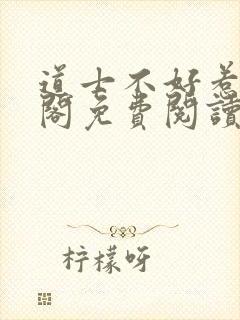 道士不好惹
閣免費閱讀
柠檬呀